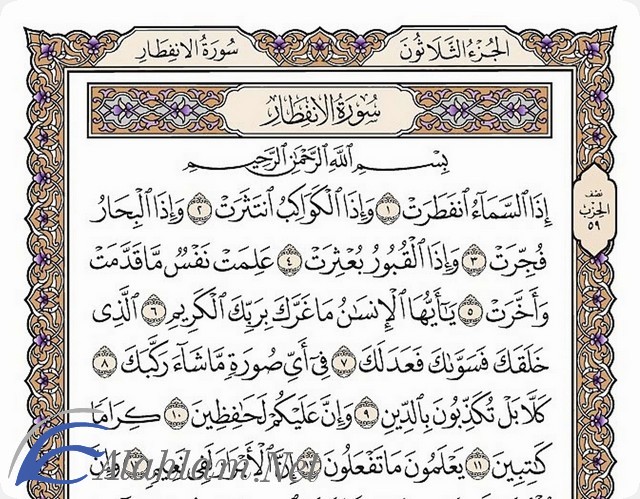 الجُزْءُ الثَّلَاثُونَ
سُورَةُ الِانفِطَارِ
سُورَةُ الِانفِطَارِ
بِسْمِ ٱللَّهِ ٱلرَّحْمَٰنِ ٱلرَّحِيمِ
إِذَا ٱلسَّمَآءُ ٱنفَطَرَتْ ١ وَإِذَا ٱلْكَوَاكِبُ ٱنتَثَرَتْ ٢ وَإِذَا ٱلْبِحَارُ
فُجِّرَتْ ٣ وَإِذَا ٱلْقُبُورُ بُعْثِرَتْ ٤ عَلِمَتْ نَفْسٌ مَّا قَدَّمَتْ
وَأَخَّرَتْ ٥ يَٰٓأَيُّهَا ٱلْإِنسَٰنُ مَا غَرَّكَ بِرَبِّكَ ٱلْكَرِيمِ ٦ ٱلَّذِى
خَلَقَكَ فَسَوَّىٰكَ فَعَدَلَكَ ٧ فِىٓ أَىِّ صُورَةٍ مَّا شَآءَ رَكَّبَكَ ٨
كَلَّا بَلْ تُكَذِّبُونَ بِٱلدِّينِ ٩ وَإِنَّ عَلَيْكُمْ لَحَٰفِظِينَ ١٠ كِرَامًا
كَٰتِبِينَ ١١ يَعْلَمُونَ مَا تَفْعَلُونَ ١٢ إِنَّ ٱلْأَبْرَارَ لَفِى نَعِيمٍ ١٣ وَإِنَّ
نصف
الحزب
٥٩
Alahlam.Net